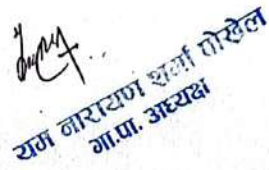 यम नारायण शर्मा पोखेल
गा.पा. अध्यक्ष